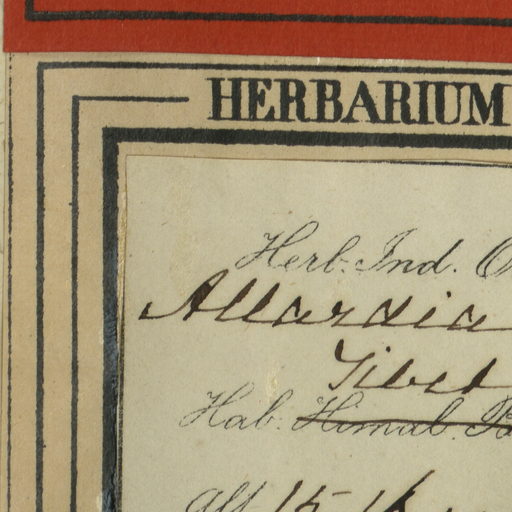 HERBARIUM
Herb. Ind. O
Allardia
Tibet
Hab. Himal. B
alt 15-16